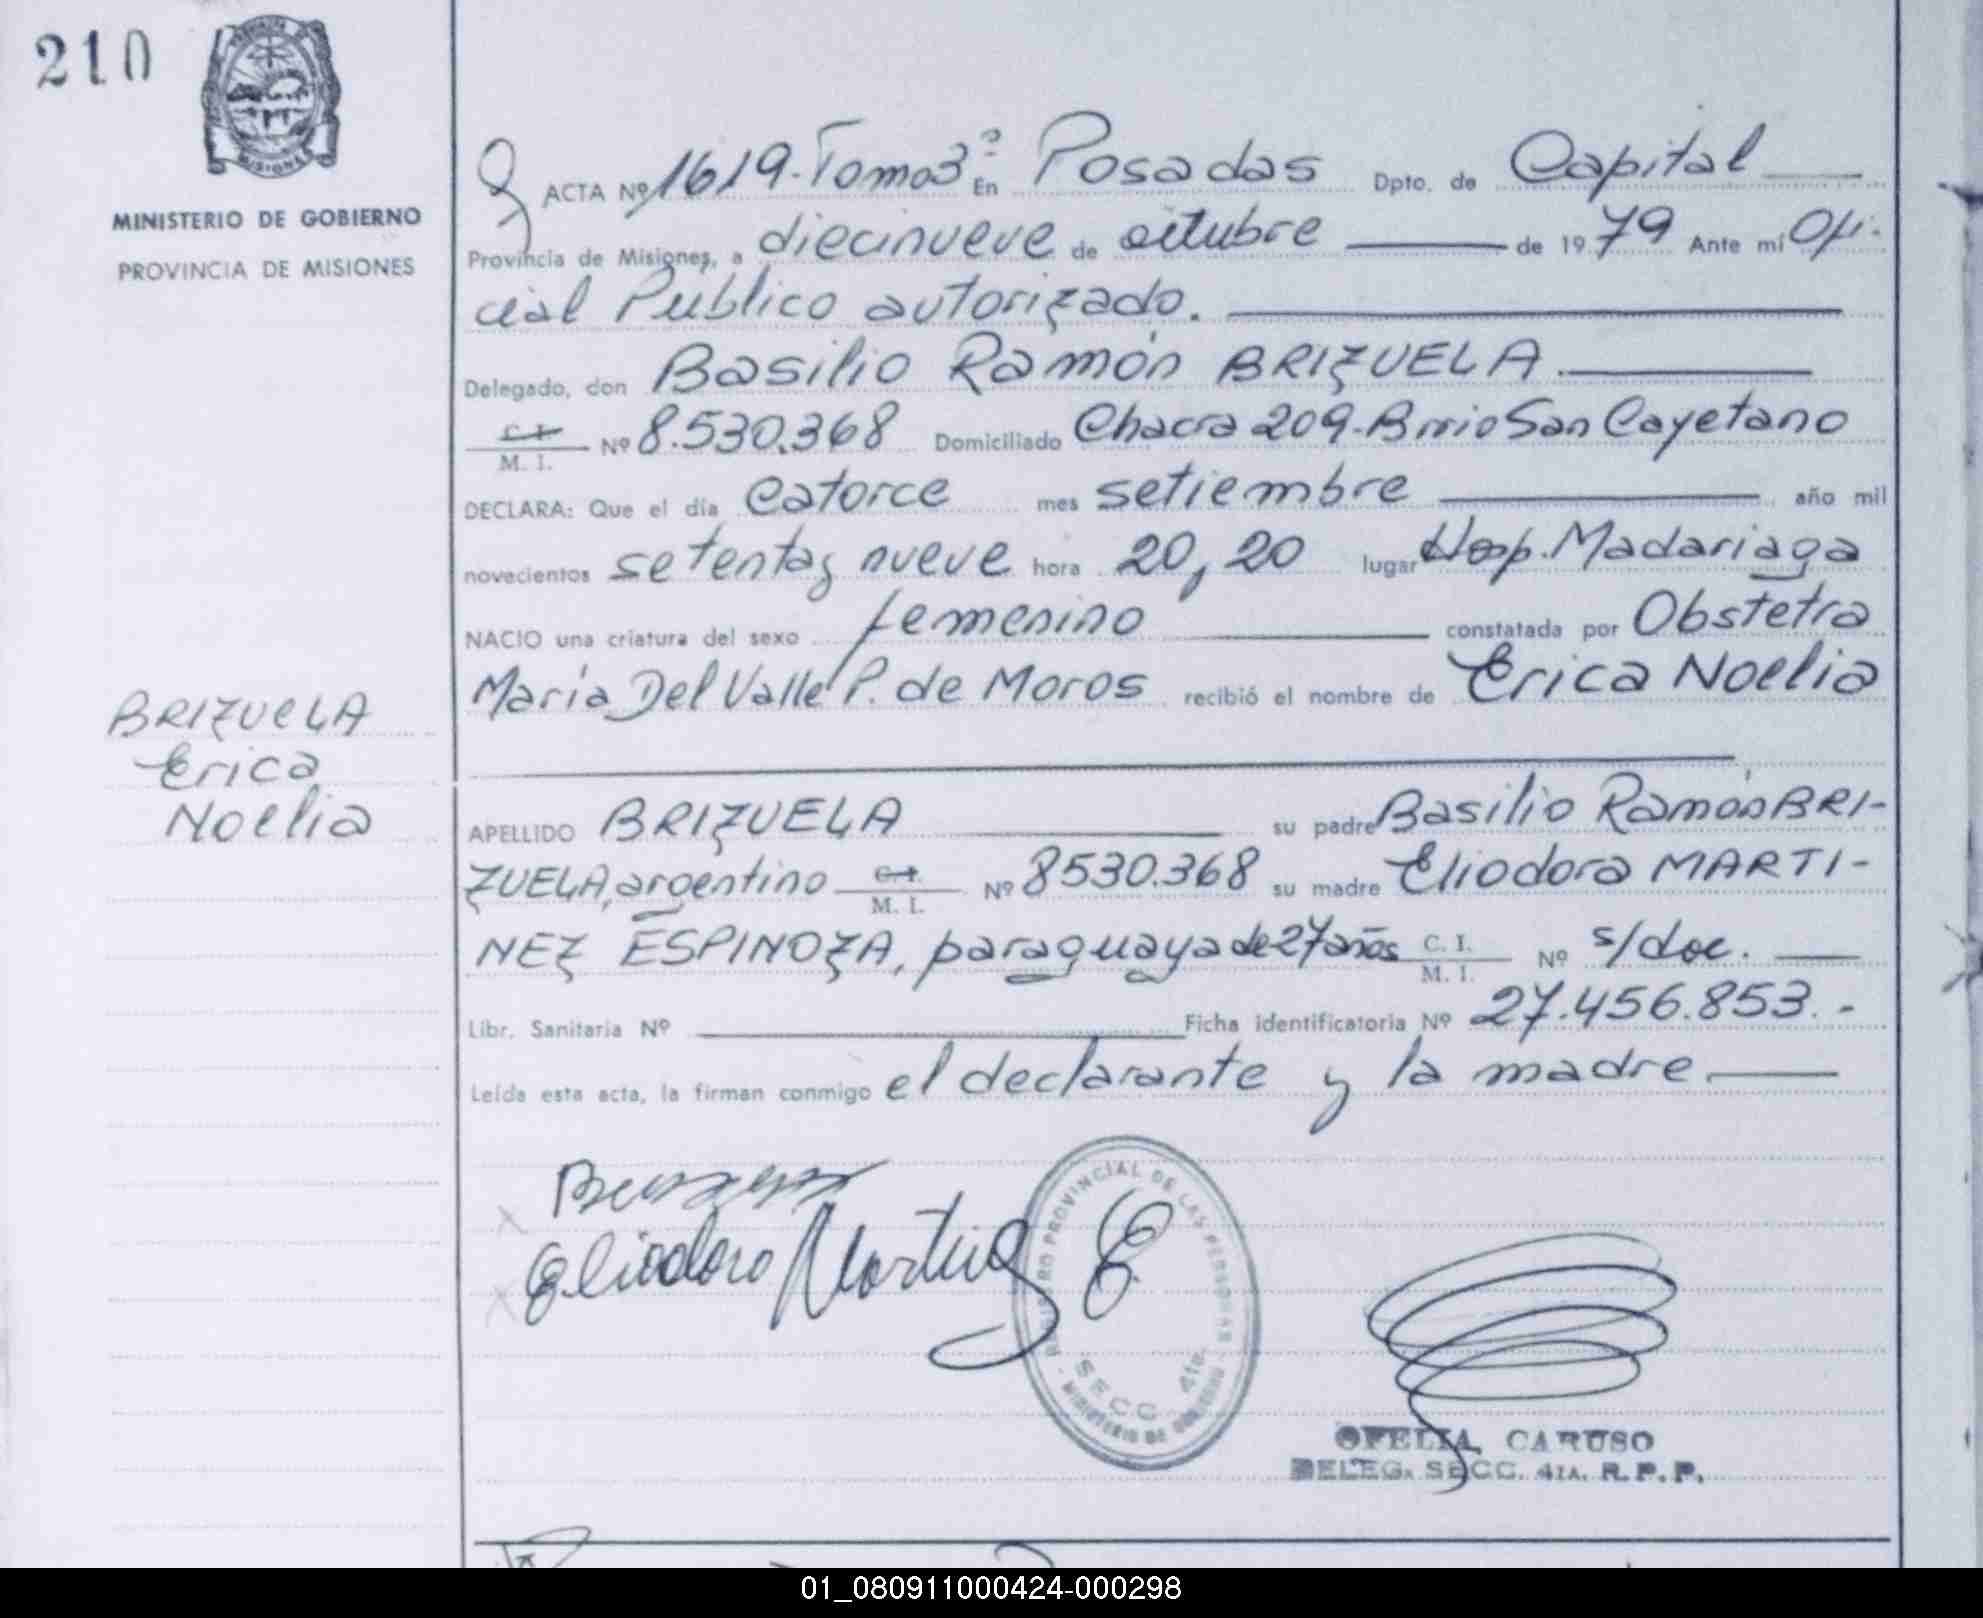 210
MISIONES
MINISTERIO DE GOBIERNO
PROVINCIA DE MISIONES
BRIZUELA
Erica
Noelia
ACTA Nº 1619. Tomo 3º En Posadas Dpto. de Capital
Provincia de Misiones, a diecinueve de octubre de 1979 Ante mí Ofi-
cial Público autorizado.
Delegado, don Basilio Ramón BRIZUELA.
C. I.
M. I. Nº 8.530.368 Domiciliado Chacra 209-Barrio San Cayetano
DECLARA: Que el día Catorce mes setiembre año mil
novecientos setenta y nueve hora 20,20 lugar Hosp. Madariaga
NACIO una criatura del sexo femenino constatada por Obstetra
María Del Valle P. de Moros recibió el nombre de Erica Noelia
APELLIDO BRIZUELA su padre Basilio Ramón BRI-
ZUELA, argentino C. I. M. I. Nº 8530.368 su madre Eliodora MARTI-
NEZ ESPINOZA, paraguaya de 27 años C. I. M. I. Nº s/doc.
Libr. Sanitaria Nº Ficha identificatoria Nº 27.456.853.-
Leída esta acta, la firman conmigo el declarante y la madre
Eliodoro Martinez E
REGISTRO PROVINCIAL DE LAS PERSONAS
SECC. 4ta.
MINISTERIO DE GOBIERNO
OFELIA CARUSO
DELEG. SECC. 4TA. R. P. P.
01_080911000424-000298